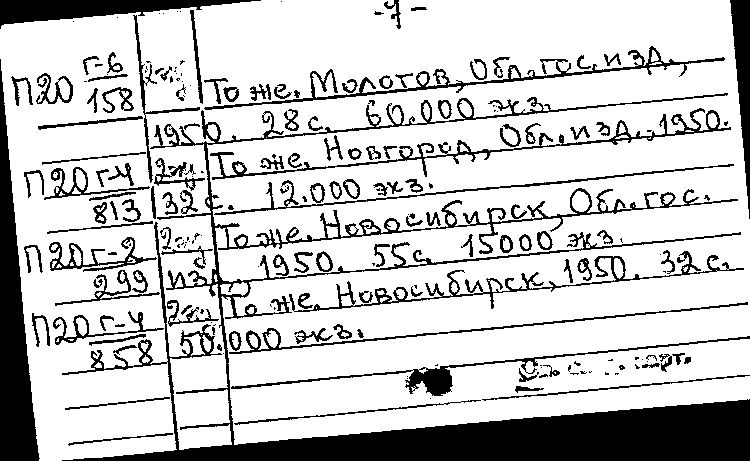 -7-
П20 Г-6/158 2экз То же. Молотов, Обл.гос.изд.,
1950. 28 с. 60.000 экз.
П20 Г-4/813 2экз. То же. Новгород, Обл.изд., 1950.
32 с. 12.000 экз.
П20 Г-2/299 2экз То же. Новосибирск, Обл.гос.
изд., 1950. 55с. 15000 экз.
П20 Г-4/858 2экз То же. Новосибирск, 1950. 32 с.
50.000 экз.